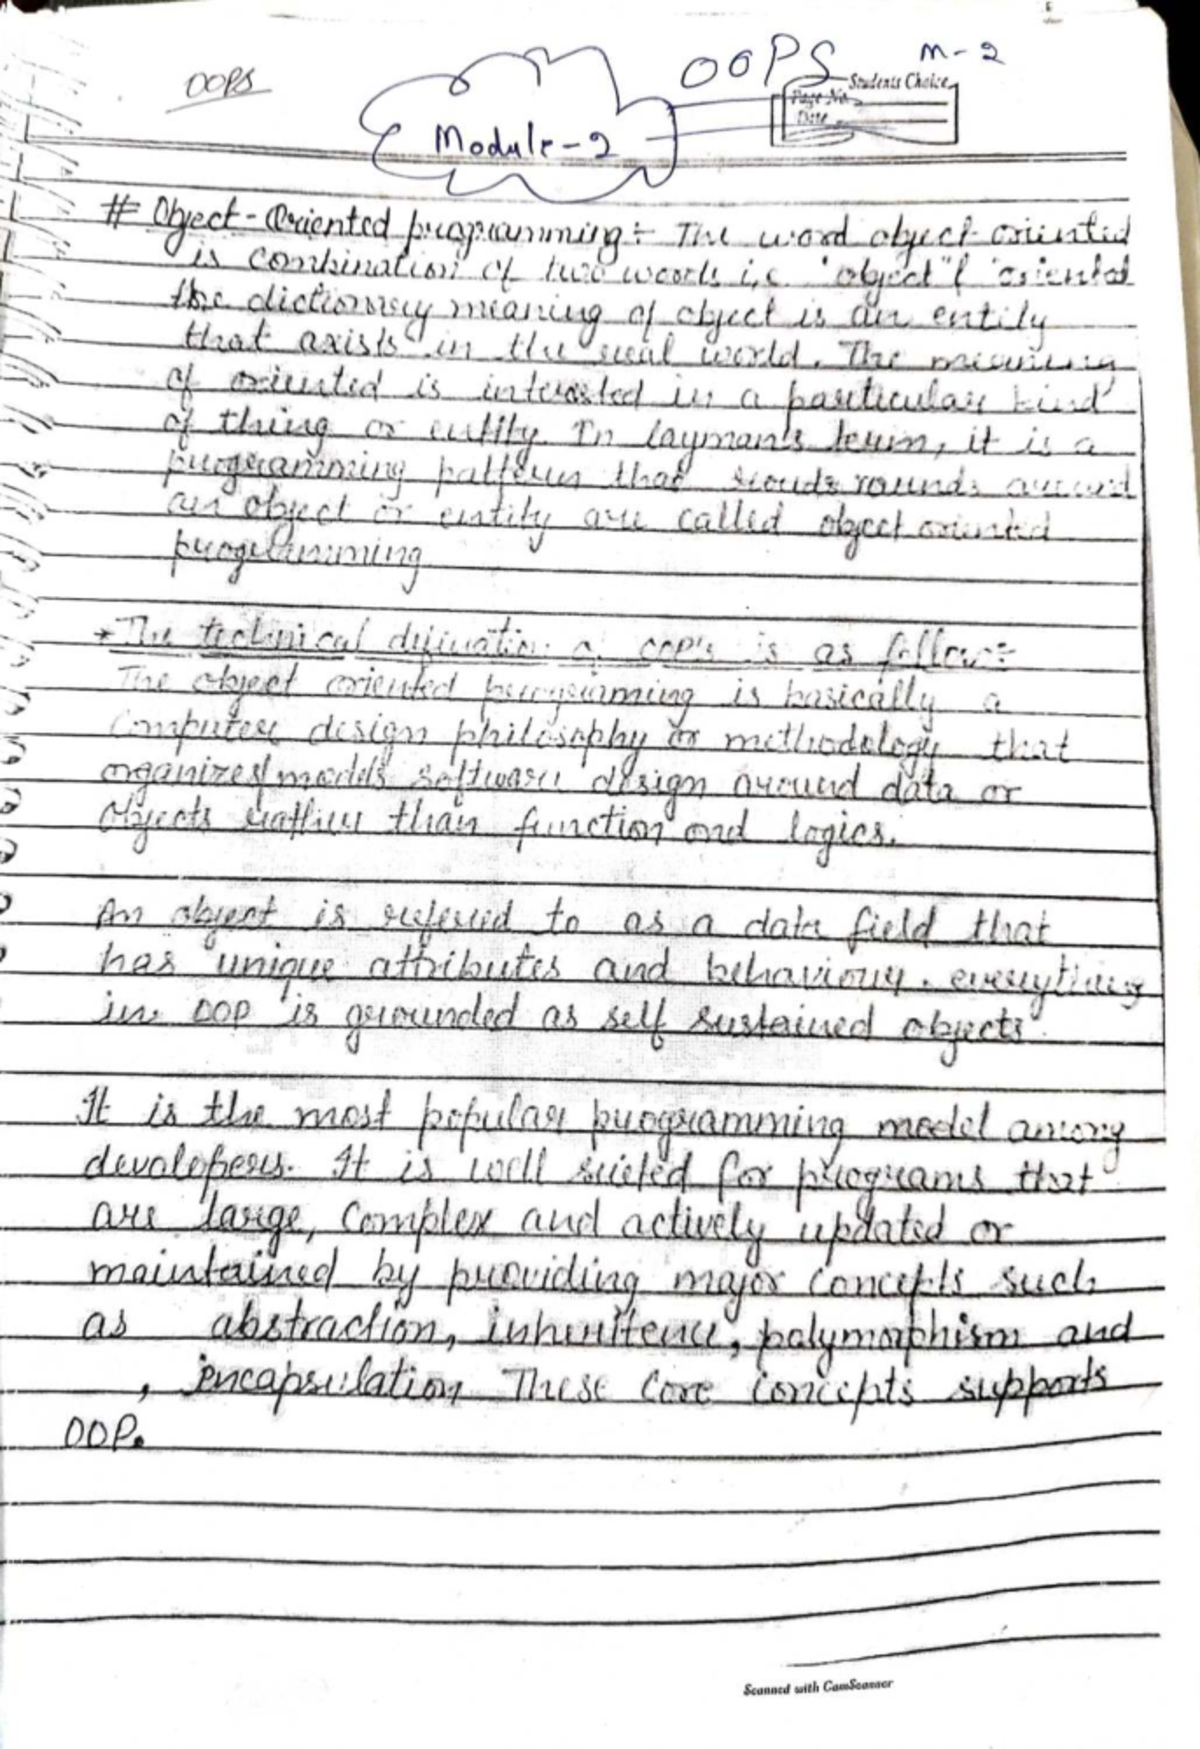 OOPS
OOPS M-2
Students Choice
Page No.
Date
Module-2
# Object-Oriented programming:- The word object-oriented
is combination of two words i.e. "object" & "oriented
the dictionary meaning of object is an entity
that axists in the real world. The meaning
of oriented is interested in a particular kind
of thing or entity. In layman's term, it is a
programming pattern that rounds around
an object or entity are called object oriented
programming
* The technical difination of OOP's is as follow:-
The object oriented programing is basically a
Computer design philosophy or methodology that
organizes/models software design around data or
objects rather than function and logics.
An object is refered to as a data field that
has unique attributes and behaviour. everything
in OOP is grounded as self sustained objects.
It is the most popular programming model among
devolopers. It is well suited for programs that
are large, complex and actively updated or
maintained by providing major concepts such
as abstraction, inheritence, polymorphism and
, encapsulation These core concepts supports
OOP.
Scanned with CamScanner